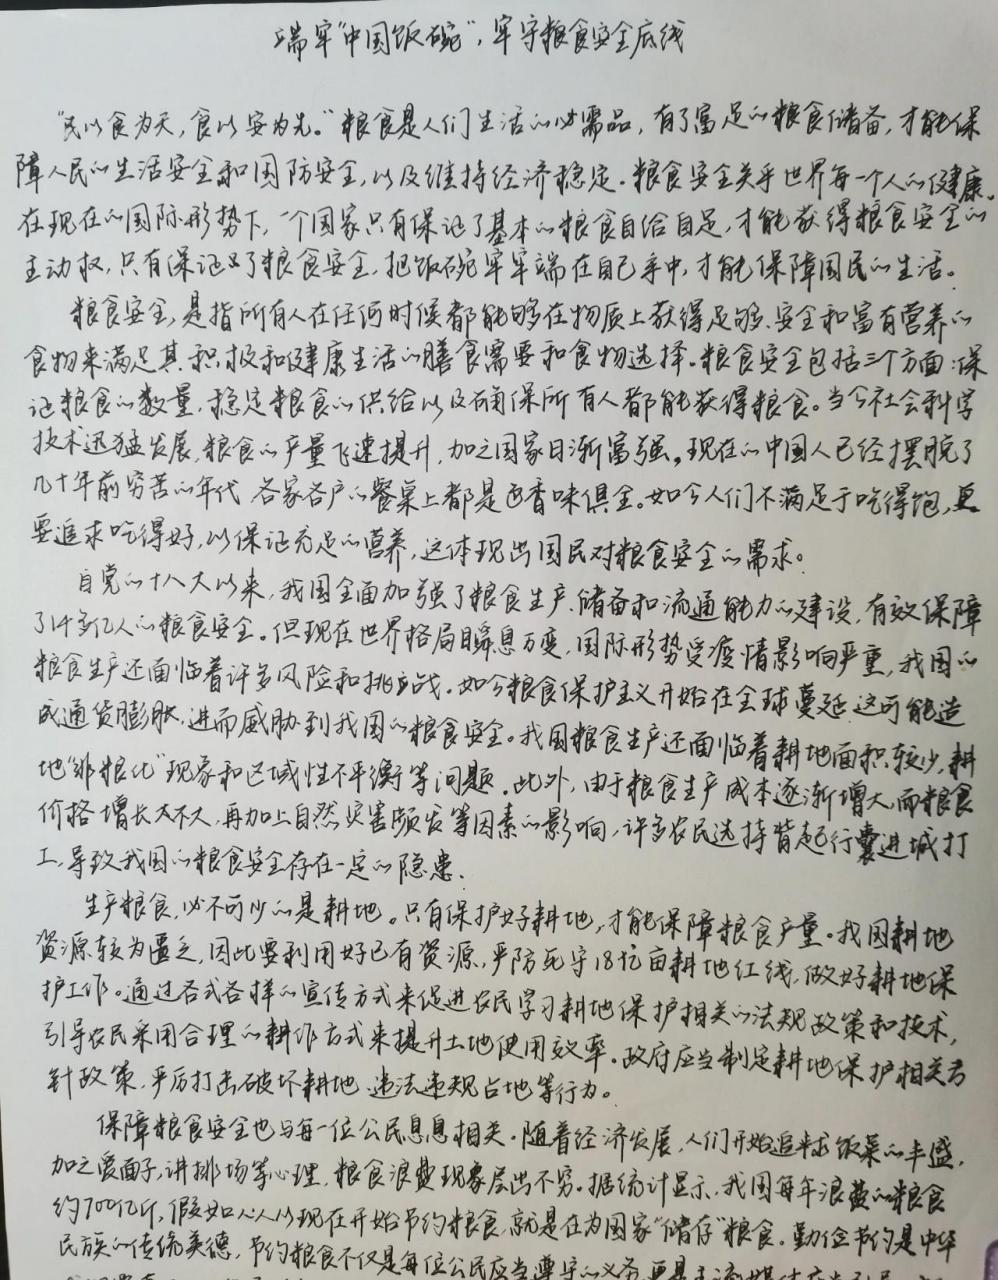 端牢“中国饭碗”,牢守粮食安全底线
“民以食为天,食以安为先。”粮食是人们生活的必需品,有了富足的粮食储备,才能保
障人民的生活安全和国防安全,以及维持经济稳定.粮食安全关乎世界每一个人的健康。
在现在的国际形势下,一个国家只有保证了基本的粮食自给自足,才能获得粮食安全的
主动权,只有保证了粮食安全,把饭碗牢牢端在自己手中,才能保障国民的生活。
粮食安全,是指所有人在任何时候都能够在物质上获得足够、安全和富有营养的
食物来满足其积极和健康生活的膳食需要和食物选择。粮食安全包括三个方面:保
证粮食的数量,稳定粮食的供给以及确保所有人都能获得粮食。当今社会科学
技术迅猛发展,粮食的产量飞速提升,加之国家日渐富强。现在的中国人已经摆脱了
几十年前穷苦的年代,各家各户的餐桌上都是色香味俱全。如今人们不满足于吃得饱,更
要追求吃得好,以保证充足的营养,这体现出国民对粮食安全的需求。
自党的十八大以来,我国全面加强了粮食生产、储备和流通能力的建设,有效保障
了14多亿人的粮食安全。但现在世界格局瞬息万变,国际形势受疫情影响严重,我国的
粮食生产还面临着许多风险和挑战。如今粮食保护主义开始在全球蔓延,这可能造
成通货膨胀,进而威胁到我国的粮食安全。我国粮食生产还面临着耕地面积较少,耕
地“非粮化”现象和区域性不平衡等问题。此外,由于粮食生产成本逐渐增大,而粮食
价格增长不大,再加上自然灾害频发等因素的影响,许多农民选择背起行囊进城打
工,导致我国的粮食安全存在一定的隐患.
生产粮食,必不可少的是耕地。只有保护好耕地,才能保障粮食产量。我国耕地
资源较为匮乏,因此要利用好已有资源,严防死守18亿亩耕地红线,做好耕地保
护工作。通过各式各样的宣传方式来促进农民学习耕地保护相关的法规政策和技术,
引导农民采用合理的耕作方式来提升土地使用效率。政府应当制定耕地保护相关方
针政策,严厉打击破坏耕地、违法违规占地等行为。
保障粮食安全也与每一位公民息息相关.随着经济发展,人们开始追求饭菜的丰盛,
加之爱面子,讲排场等心理,粮食浪费现象层出不穷。据统计显示,我国每年浪费的粮食
约700亿斤,假如人人从现在开始节约粮食,就是在为国家“储存”粮食。勤俭节约是中华
民族的传统美德,节约粮食不仅是每位公民应当遵守的义务,更是